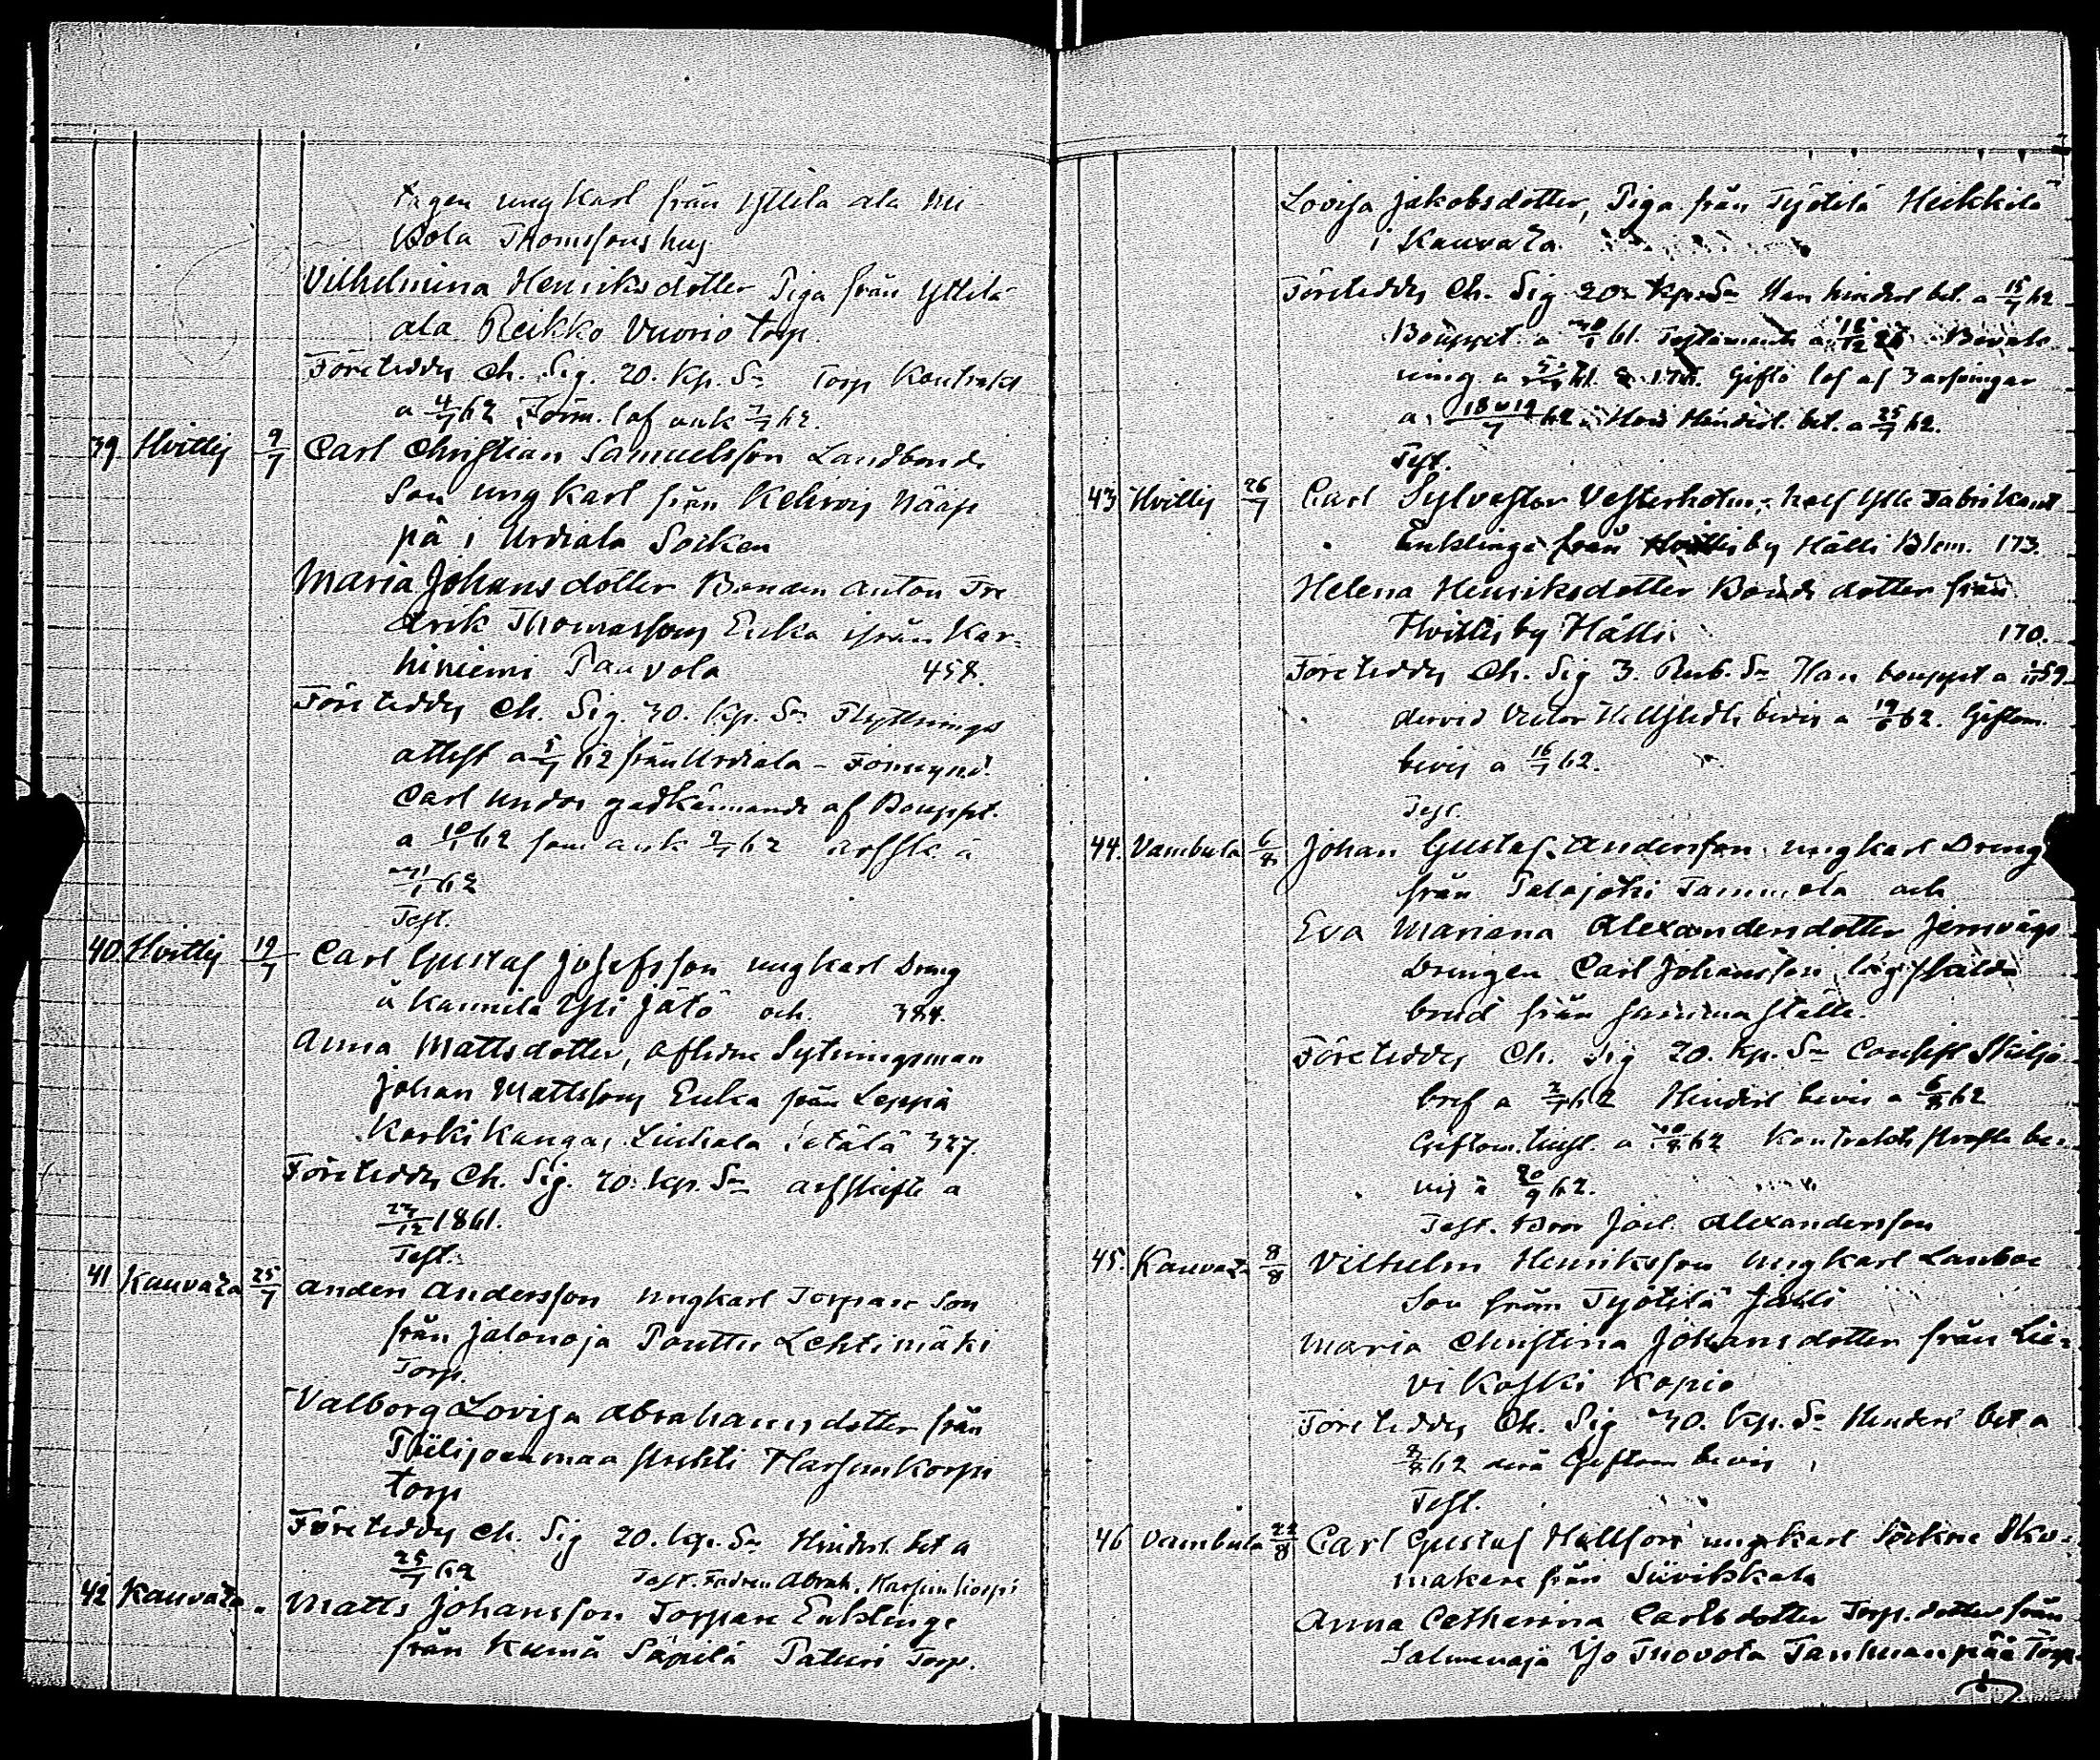 tagen ungkarl från Yttilä ala Mi-
kola Thomssons hus
Vilhelmina Henriksdotter Piga från Yttilä
ala Reikko Vuorio torp.
Företeddes Ch. Sig. 20. kp. Sr Torp Kontrakt
a 4/7 62 Förm. lof ank 7/7 62.
39 Hvittis 9/7 Carl Christian Samuelsson Landbonde
Son ungkarl från Kehrois Nääp
pä i Urdiala Socken
Maria Johansdotter Bonden Anton Fre
drik Thomassons Enka ifrån Kar-
hiniemi Pauvola 458.
Företeddes Ch. Sig. 30. kp. Sr Flyttnings
attest a 5/7 62 från Urdiala - Förmynd.
Carl godkännande af Bouppt.
a 10/ 62 som ank 7/7 62 a
62
Test.
40 Hvittis 19/7 Carl Gustaf Josefsson ungkarl Dräng
å Kannila Yli Jätö och. 384.
Anna Mattsdotter, Aflidne Sytningsman
Johan Mattssons Enka från Leppä
Korkikangas 327.
Företeddes Ch. Sig. 20. kp. Sr arfskifte a
/12 1861.
Test.
41 Kauvaza 25/7 Anders Andersson ungkarl Torpare Son
från Jalonoja Pouttu Lehtimäki
Torp.
Valborg Lovisa Abrahamsdotter från
Piilijoenmaa Harsunkorpi
torp
Företeddes Ch. Sig 20. kp. Sr Hindersl. bet a
25/7 62 Test. Fadren Abrah. Harsunkorpi
42 Kauvaza " Matts Johansson Torpare Enklinge
från Kumå Säpilä Paturi Torp.
Lovisa Jakobsdotter, Piga från Työtilä Heikkilä
i Kauvaza.
Företeddes Ch. Sig 20 kp. Sr Han hindersl bet. a 15/7 62
Bouppt. a 61. Testamente a
ning a 61. Gifto lof af 3 arfvingar
a 18 o 19/7 62. Hindersl. bet. a 25/7 62.
Test.
43 Hvittis 26/7 Carl Sylvester Vesterholm, half Ylle Fabrikant
Enklinge från Hvittisby Hälli 173.
Helena Henriksdotter Bonde dotter från
Hvittisby Hälli 170.
Företeddes Ch. Sig 3. Rub. Sr Han bouppt a 59
Victor bevis a 19/ 62. Giftom.
bevis a 16/7 62.
Test.
44. Vambula 6/8 Johan Gustaf Andersson ungkarl Dräng
från Palojoki Tammela och
Eva Mariana Alexandersdotter Jernvägs
Drängen Carl Johansson lagskilda
brud från samma ställe.
Företeddes Ch. Sig 20. kp. Sr Consist Skiljo
bref a 62 Hindersl bevis a 6/8 62
Giftom. a 62 Kontrakts be-
vis a 20/9 62.
Test. Bror Joel. Alexandersson
45. Kauvaza 8/8 Vilhelm Henriksson ungkarl Lanboe
Son från Työtilä
Maria Christina Johansdotter från Lie-
vikoski Kopio
Företeddes Ch. Sig 30. kp. Sr Hinders bet a
8/8 62 Giftom bevis
Test.
46 Vambula 22/8 Carl Gustaf Hellfors ungkarl Sockne Sko-
makare från Siivikkala
Anna Catharina Carlsdotter Torp. dotter från
Salmenoja Yo Tuovola Tanhuanpää Torp.